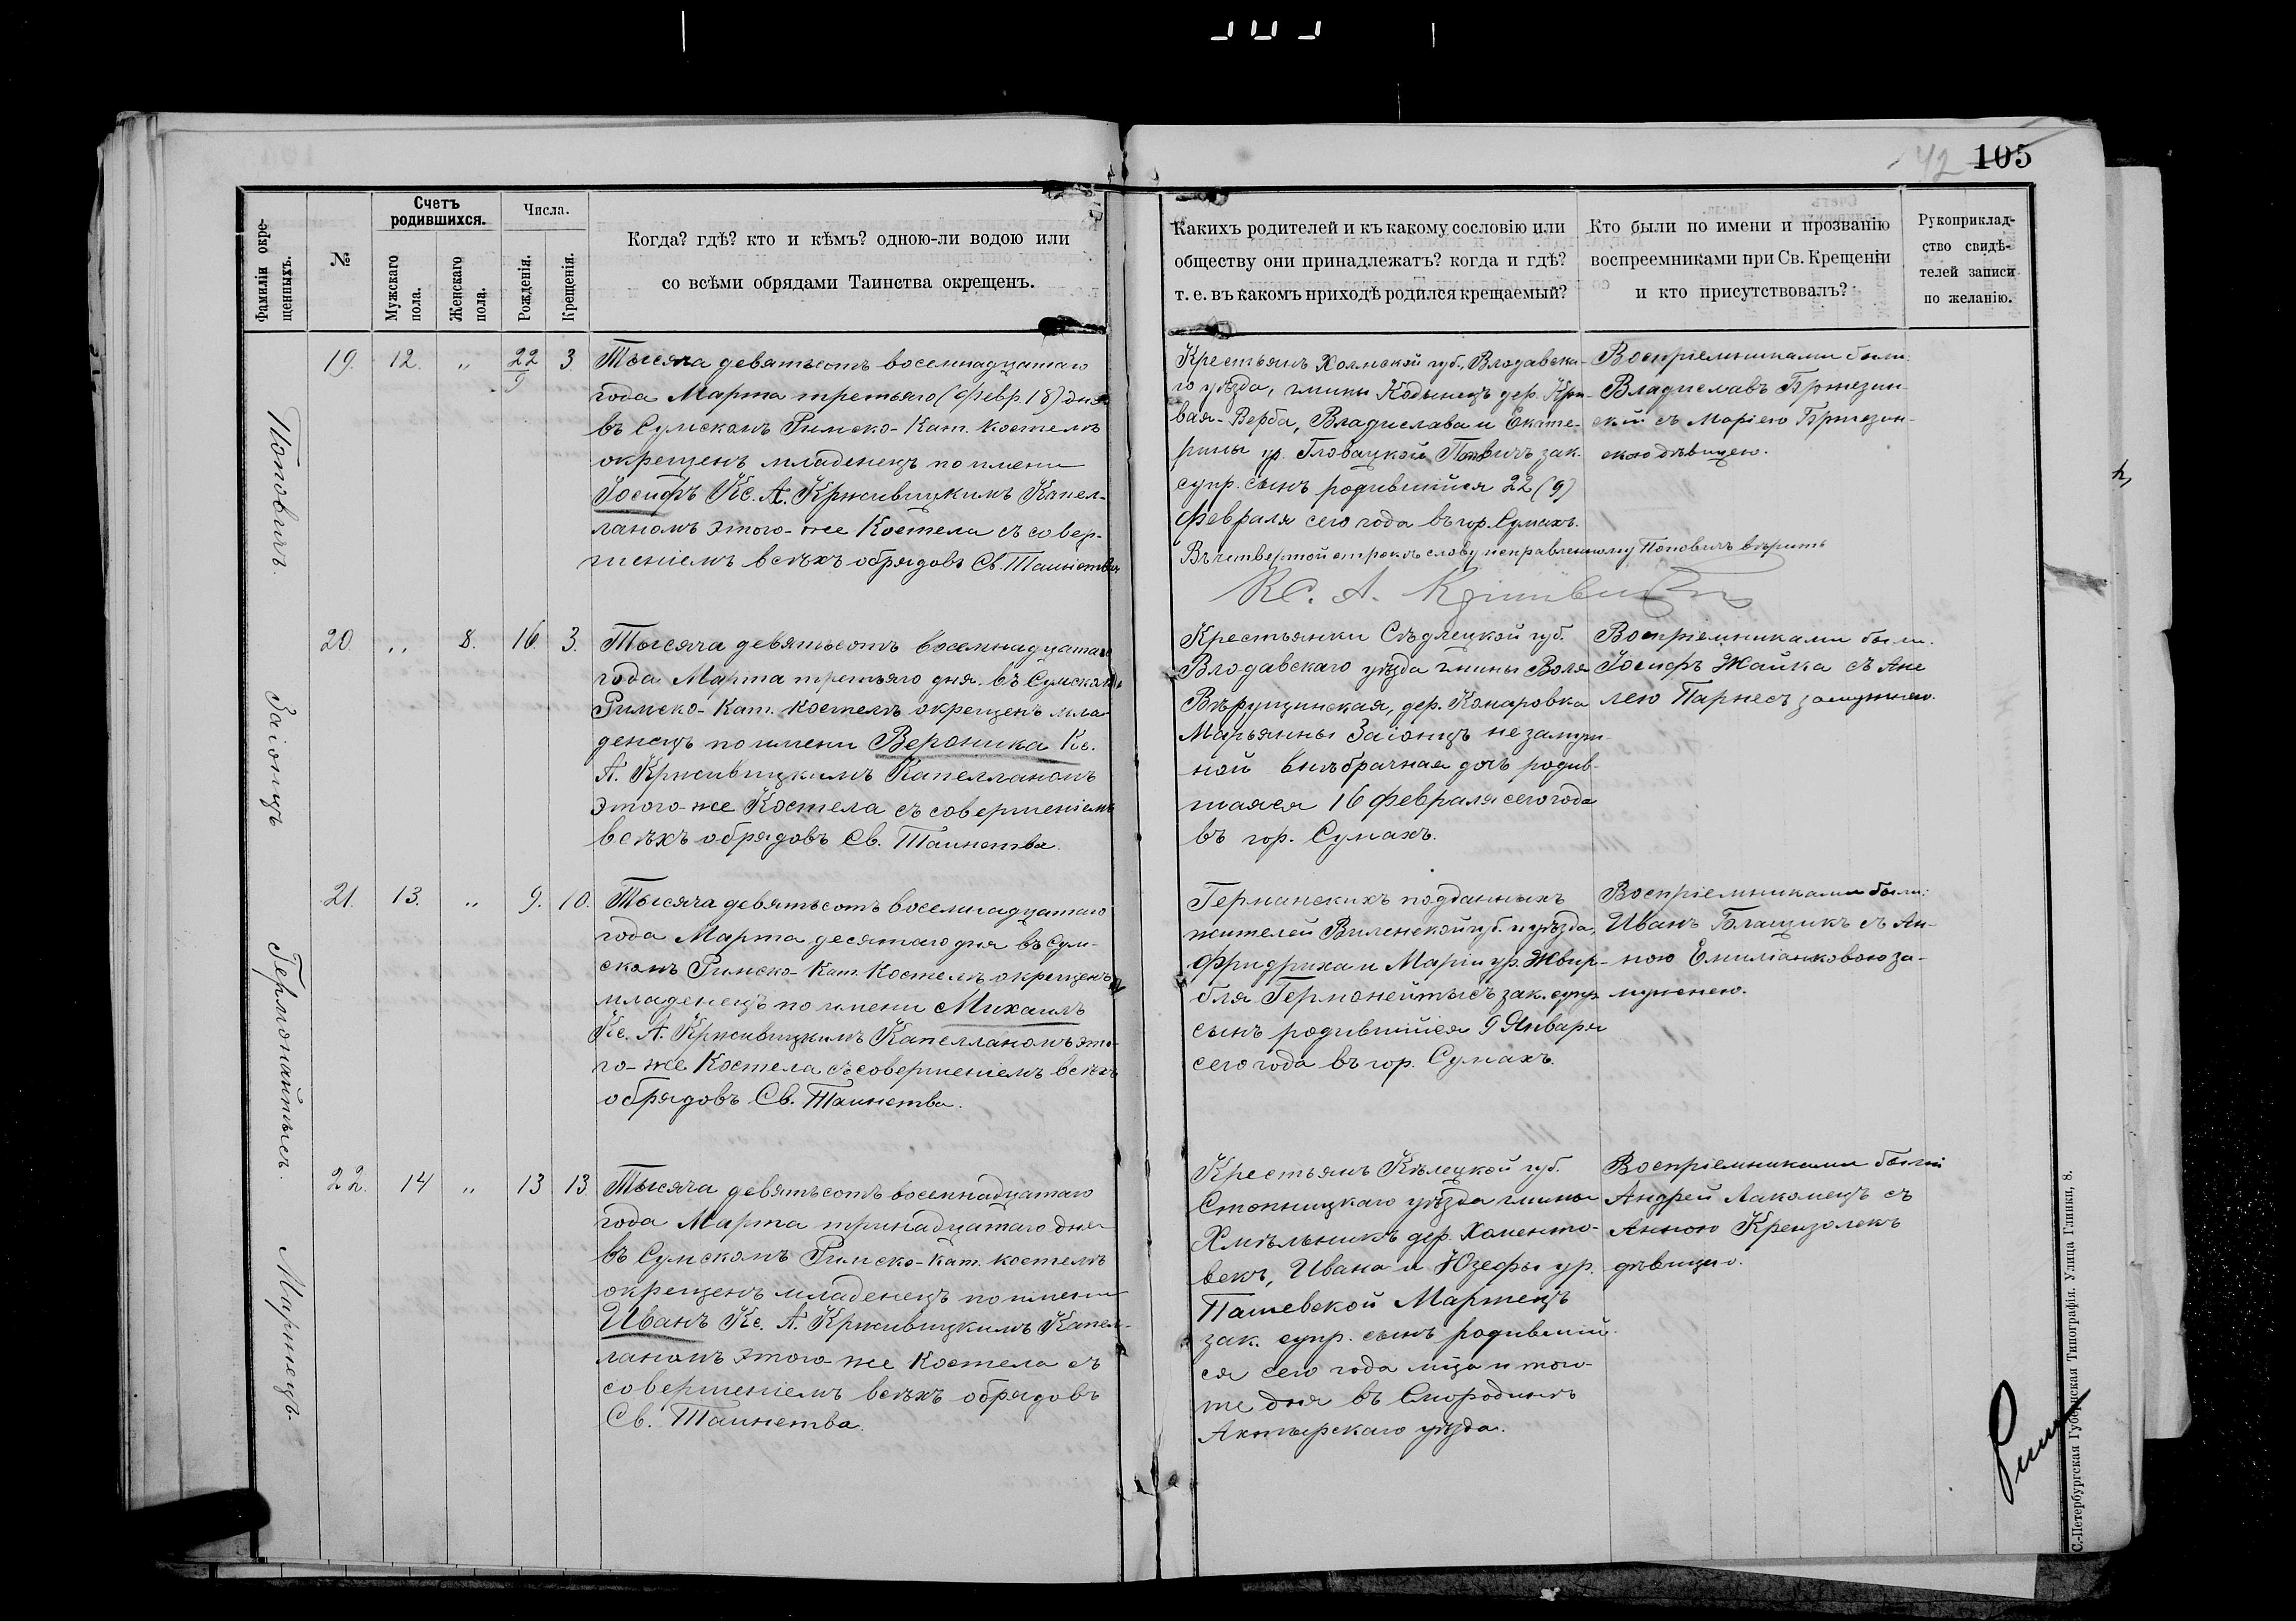 42 105
Фамиліи окре-
щенныхъ.
№
Счетъ
родившихся.
Мужскаго
пола.
Женскаго
пола.
Числа.
Рожденія.
Крещенія.
Когда? гдѣ? кто и кѣмъ? одною-ли водою или
со всѣми обрядами Таинства окрещенъ.
Какихъ родителей и къ какому сословію или
обществу они принадлежатъ? когда и гдѣ?
т. е. въ какомъ приходѣ родился крещаемый?
Кто были по имени и прозванію
воспреемниками при Св. Крещеніи
и кто присутствовалъ?
Рукоприклад-
ство свидѣ-
телей записи
по желанію.
Поповичъ.
19. 12. " 22/9 3
Тысяча девятьсотъ восемнадцатаго
года Марта третьяго (февр. 18) дня
въ Сумскомъ Римско-Кат. костелѣ
окрещенъ младенецъ по имени
Іосифъ Кс. А. Крживицкимъ Капел-
ланомъ этого-же Костела съ совер-
шеніемъ всѣхъ обрядовъ Св. Таинства
Крестьянъ Холмской губ., Влодавска-
го уѣзда, гмины Кодынецъ дер. Кри-
вая-Верба, Владислава и Екате-
рины ур. Гловацкой Поповичъ зак.
супр. сынъ родившійся 22 (9)
февраля сего года въ гор. Сумахъ.
Въ четвертой строкѣ слову исправленному Поповичъ вѣрить
Кс. А.
Воспріемниками были:
Владиславъ Бржезин-
скій съ Маріею Бржезин-
скою дѣвицею.
Заіонцъ
20. " 8. 16. 3.
Тысяча девятьсотъ восемнадцатаго
года Марта третьяго дня въ Сумскомъ
Римско-Кат. костелѣ окрещенъ мла-
денецъ по имени Вероника Кс.
А. Крживицкимъ Капелланомъ
этого-же Костела съ совершеніемъ
всѣхъ обрядовъ Св. Таинства.
Крестьянки Сѣдлецкой губ.
Влодавскаго уѣзда гмины Воля
Вѣрущинская, дер. Комаровка
Марьянны Заіонцъ незамуж-
ной внѣбрачная дочь родив-
шаяся 16 февраля сего года
въ гор. Сумахъ.
Воспріемниками были.
Іосифъ Жайка съ Ане
лею Парнесъ замужнею.
Гермонайтысъ.
21. 13. " 9. 10.
Тысяча девятьсотъ восемнадцатаго
года Марта десятаго дня въ Сум-
скомъ Римско-Кат. Костелѣ окрещенъ
младенецъ по имени Михаилъ
Кс. А. Крживицкимъ Капелланомъ это-
го-же Костела съ совершеніемъ всѣхъ
обрядовъ Св. Таинства.
Германскихъ подданныхъ
жителей Виленской губ. и уѣзда,
Фридриха и Маріи ур. Жвир-
бля Гермонейтысъ зак. супр.
сынъ родившійся 9 Января
сего года въ гор. Сумахъ.
Воспріемниками были:
Иванъ Блащикъ съ Ан-
ною Емиліанковою за-
мужнею.
Мартецъ.
22. 14 " 13 13
Тысяча девятьсотъ восемнадцатаго
года Марта тринадцатаго дня
въ Сумскомъ Римско-Кат. костелѣ
окрещенъ младенецъ по имени
Иванъ Кс. А. Крживицкимъ Капел-
ланомъ этого-же Костела съ
совершеніемъ всѣхъ обрядовъ
Св. Таинства.
Крестьянъ Кѣлецкой губ.
Стопницкаго уѣзда гмины
Хмѣльникъ дер. Хоменто-
векъ, Ивана и Юзефы ур.
Пашевской Мартецъ
зак. супр. сынъ родившій-
ся сего года мца и того-
же дня въ Смородинѣ
Ахтырскаго уѣзда.
Воспріемниками были
Андрей Лакомецъ съ
Анною Крензолекъ
дѣвицею.
С.-Петербургская Губернская Типографія. Улица Глинки, 8.